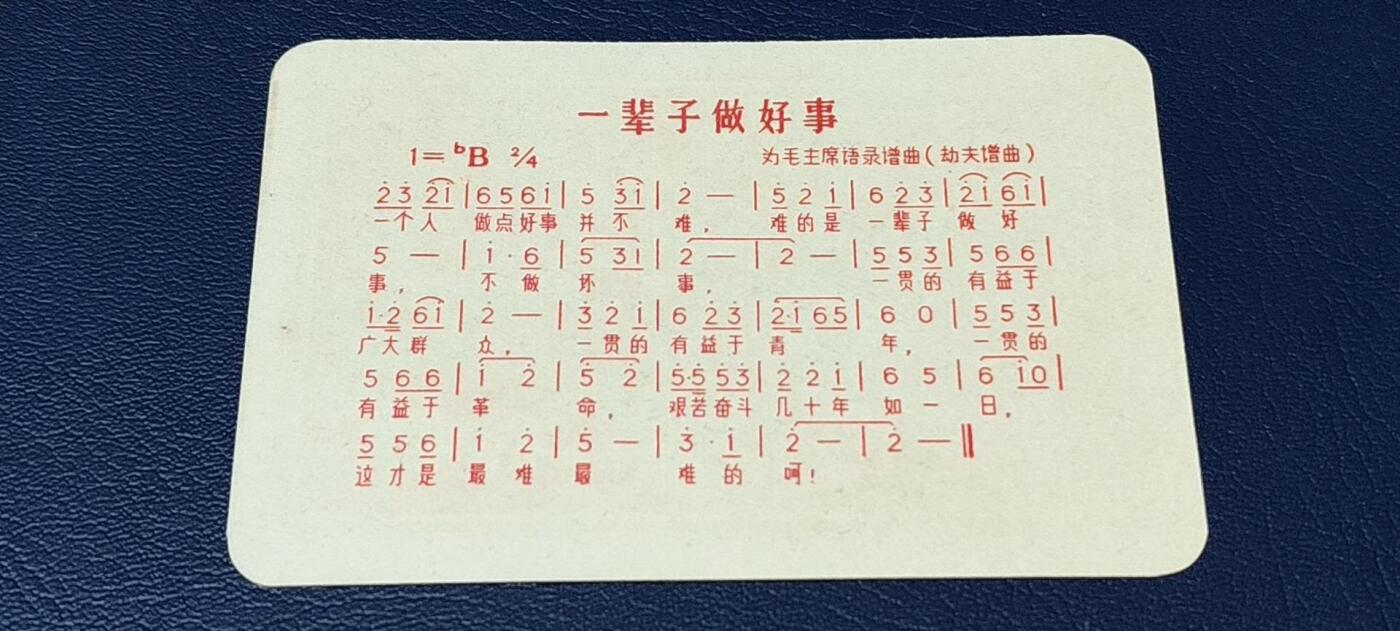 一辈子做好事
1=ᵇB 2/4 为毛主席语录谱曲(劫夫谱曲)
2̇3̇ 2̇1̇ | 6561̇ | 5̇ 3̇1̇ | 2̇ — | 5̇ 2̇ 1̇ | 6 2̇ 3̇ | 2̇1̇ 61̇ |
一个人 做点好事 并不 难, 难的是 一辈子 做 好
5 — | 1̇ · 6 | 5̇ 3̇1̇ | 2̇ — | 2̇ — | 5 5 3 | 5 6 6 |
事, 不 做 坏 事, 一贯的 有益于
1̇·2̇ 61̇ | 2̇ — | 3̇ 2̇ 1̇ | 6 2̇ 3̇ | 2̇·1̇ 65 | 6 0 | 5 5 3 |
广大群 众, 一贯的 有益于 青 年, 一贯的
5 6 6 | 1̇ 2̇ | 5̇ 2̇ | 5̇·5̇ 5̇3̇ | 2̇ 2̇ 1̇ | 6 5 | 6 1̇0 |
有益于 革 命, 艰苦奋斗 几十年 如一 日,
5 5 6 | 1̇ 2̇ | 5̇ — | 3̇ · 1̇ | 2̇ — | 2̇ — ‖
这才是 最难 最 难的 呵!